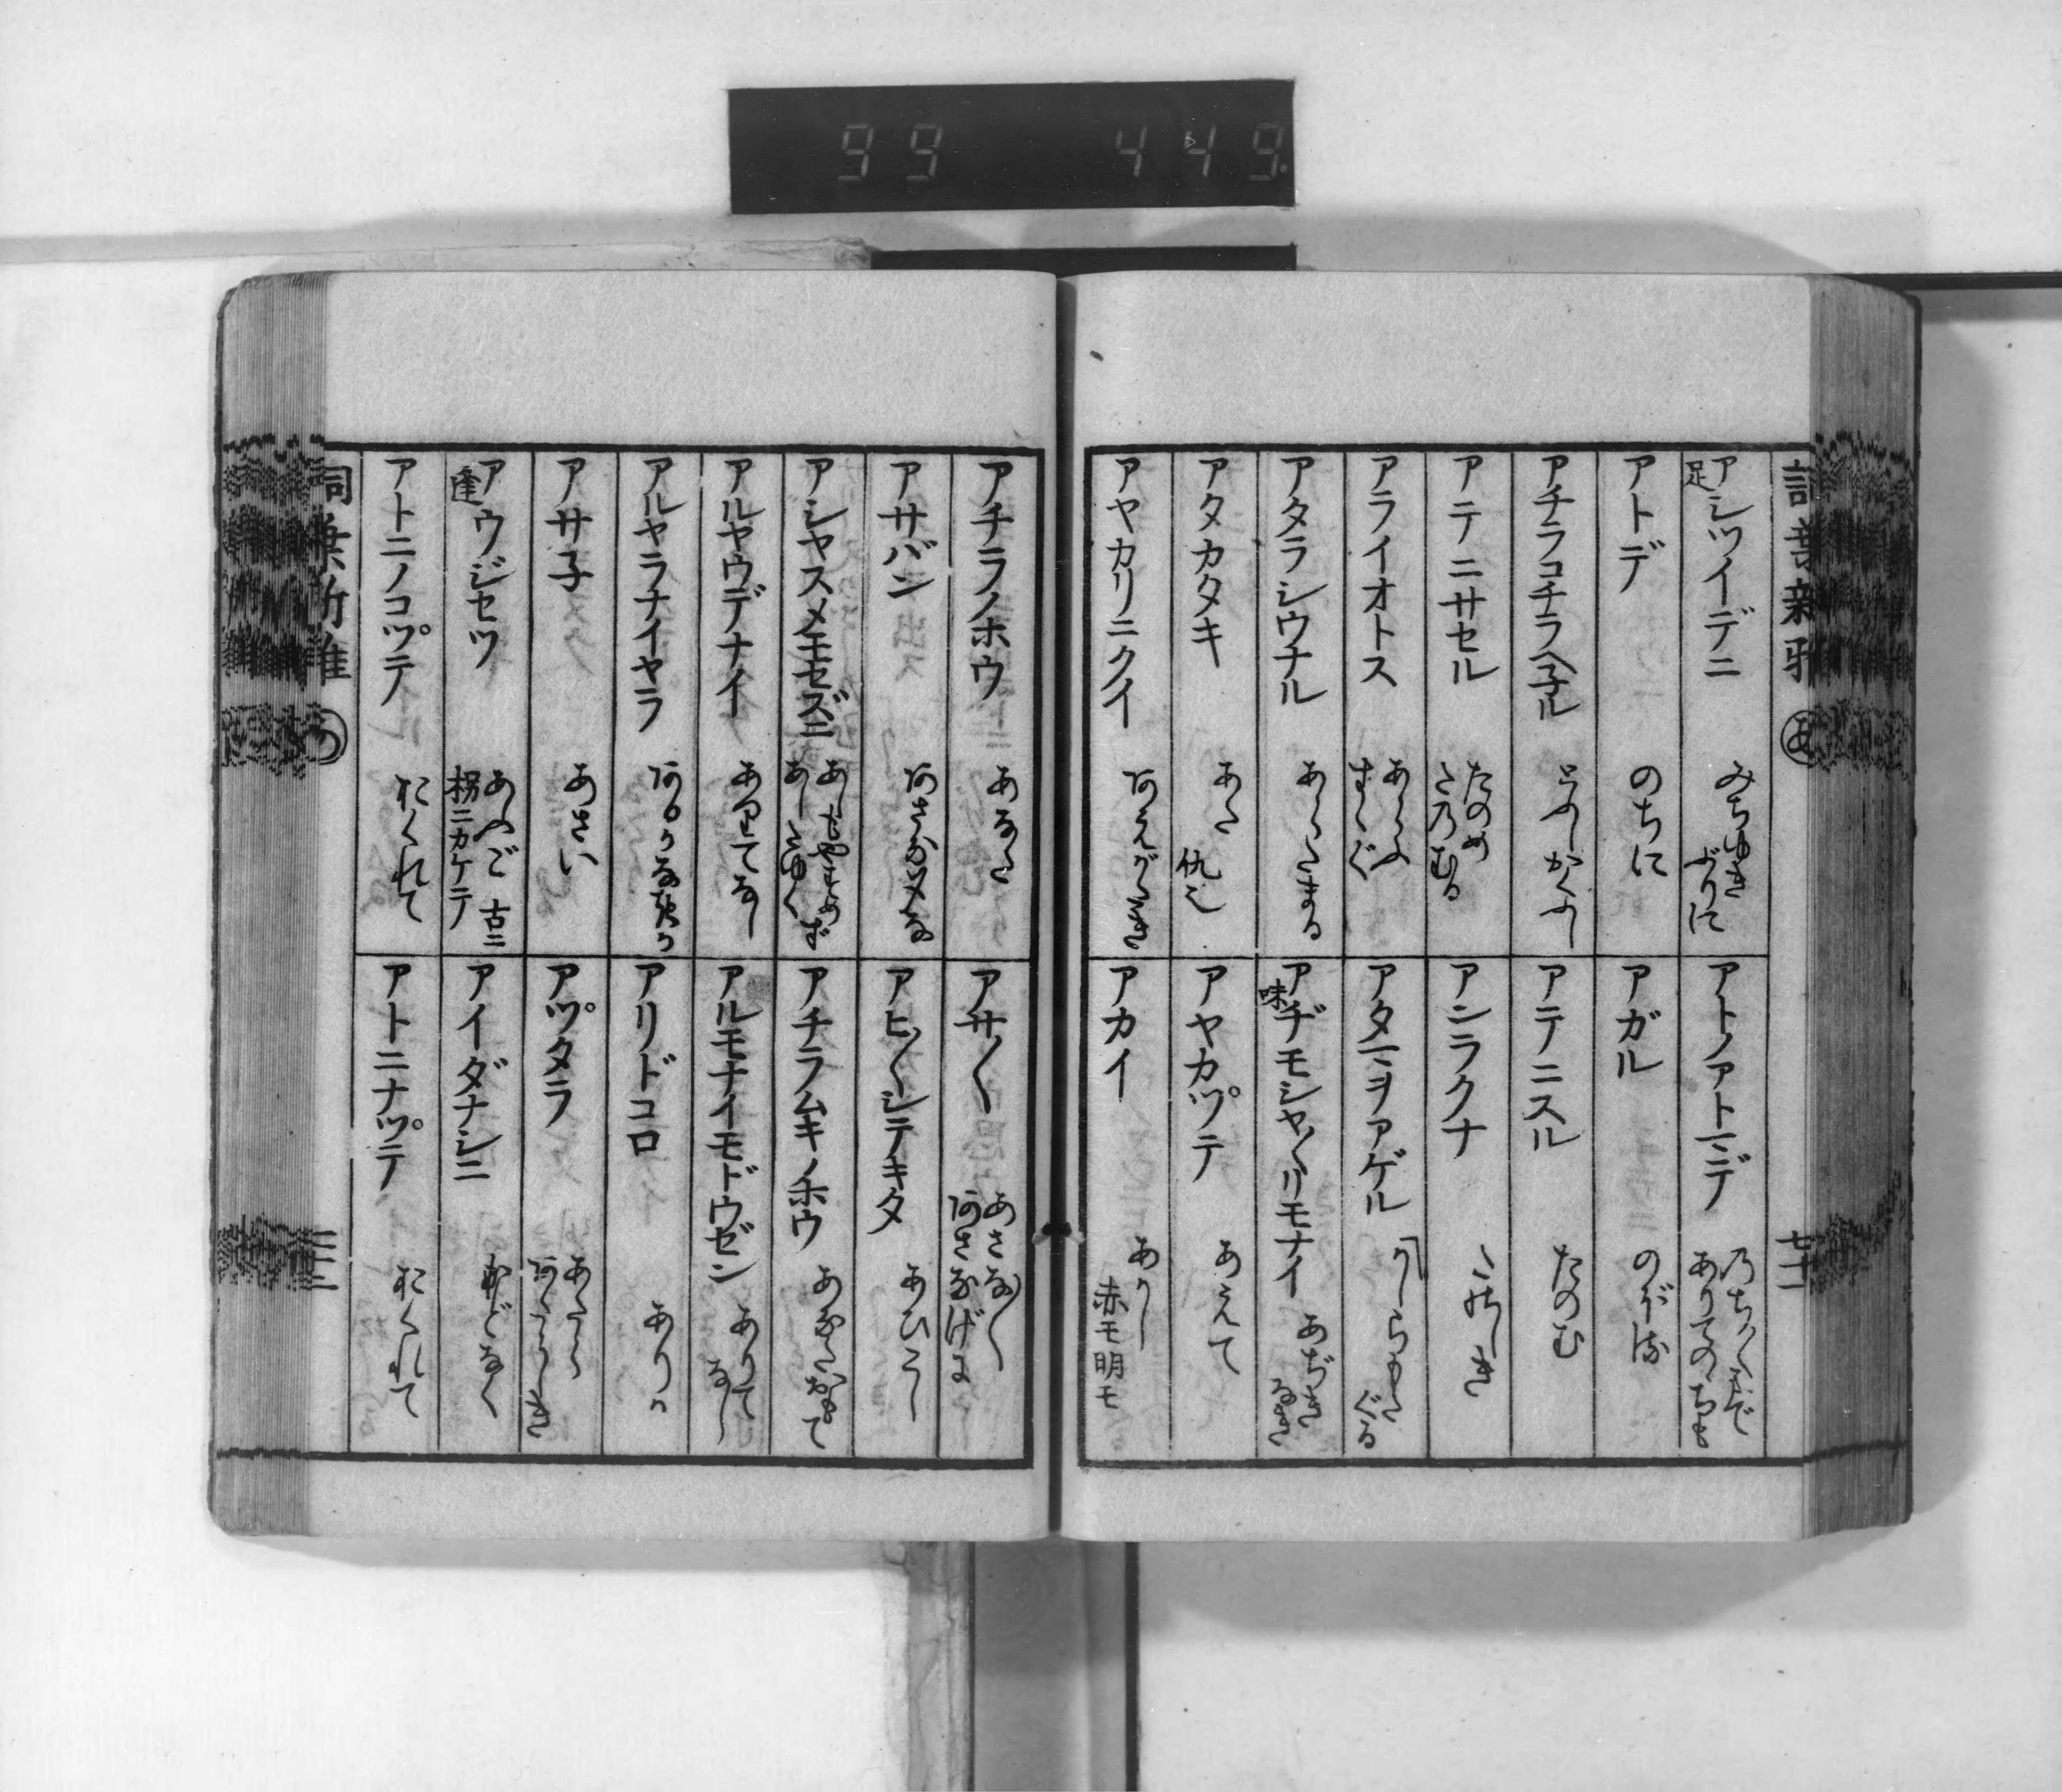 99 449
詞葉新雅 あ 七十二
アシツイデニ 足 みちゆきぶりに
アトデ のちに
アチラコチラヘ子ル
アテニサセル たのめ
アライオトス あらふ すゝぐ
アタラシウナル あらたまる
アタカタキ あた 仇也
アヤカリニクイ あえがたき
アトノアトニデ
アガル のぼる
アテニスル たのむ
アンラクナ
アタマヲアゲル かしらもたぐる
アヂモシヤ〳〵リモナイ 味 あぢきなき
アヤカツ゚テ あえて
アカイ あかし 赤モ明モ
アチラノホウ あなた
アサバン あさなゆふな
アシヤスメモセズニ
アルヤウデナイ ありてなし
アルヤラナイヤラ
アサ子 あさい
アウジセツ 逢 あふご 古ニ 枴ニカケテ
アトニノコツ゚テ おくれて
アサ〳〵 あさな〳〵 あさなげに
アヒ〳〵シテキタ
アチラムキノホウ あなたおもて
アルモナイモドウゼン ありてなし
アリドコロ ありか
アツ゚タラ あたら あたらしき
アイダナシニ
アトニナツ゚テ おくれて
詞葉新雅 あ